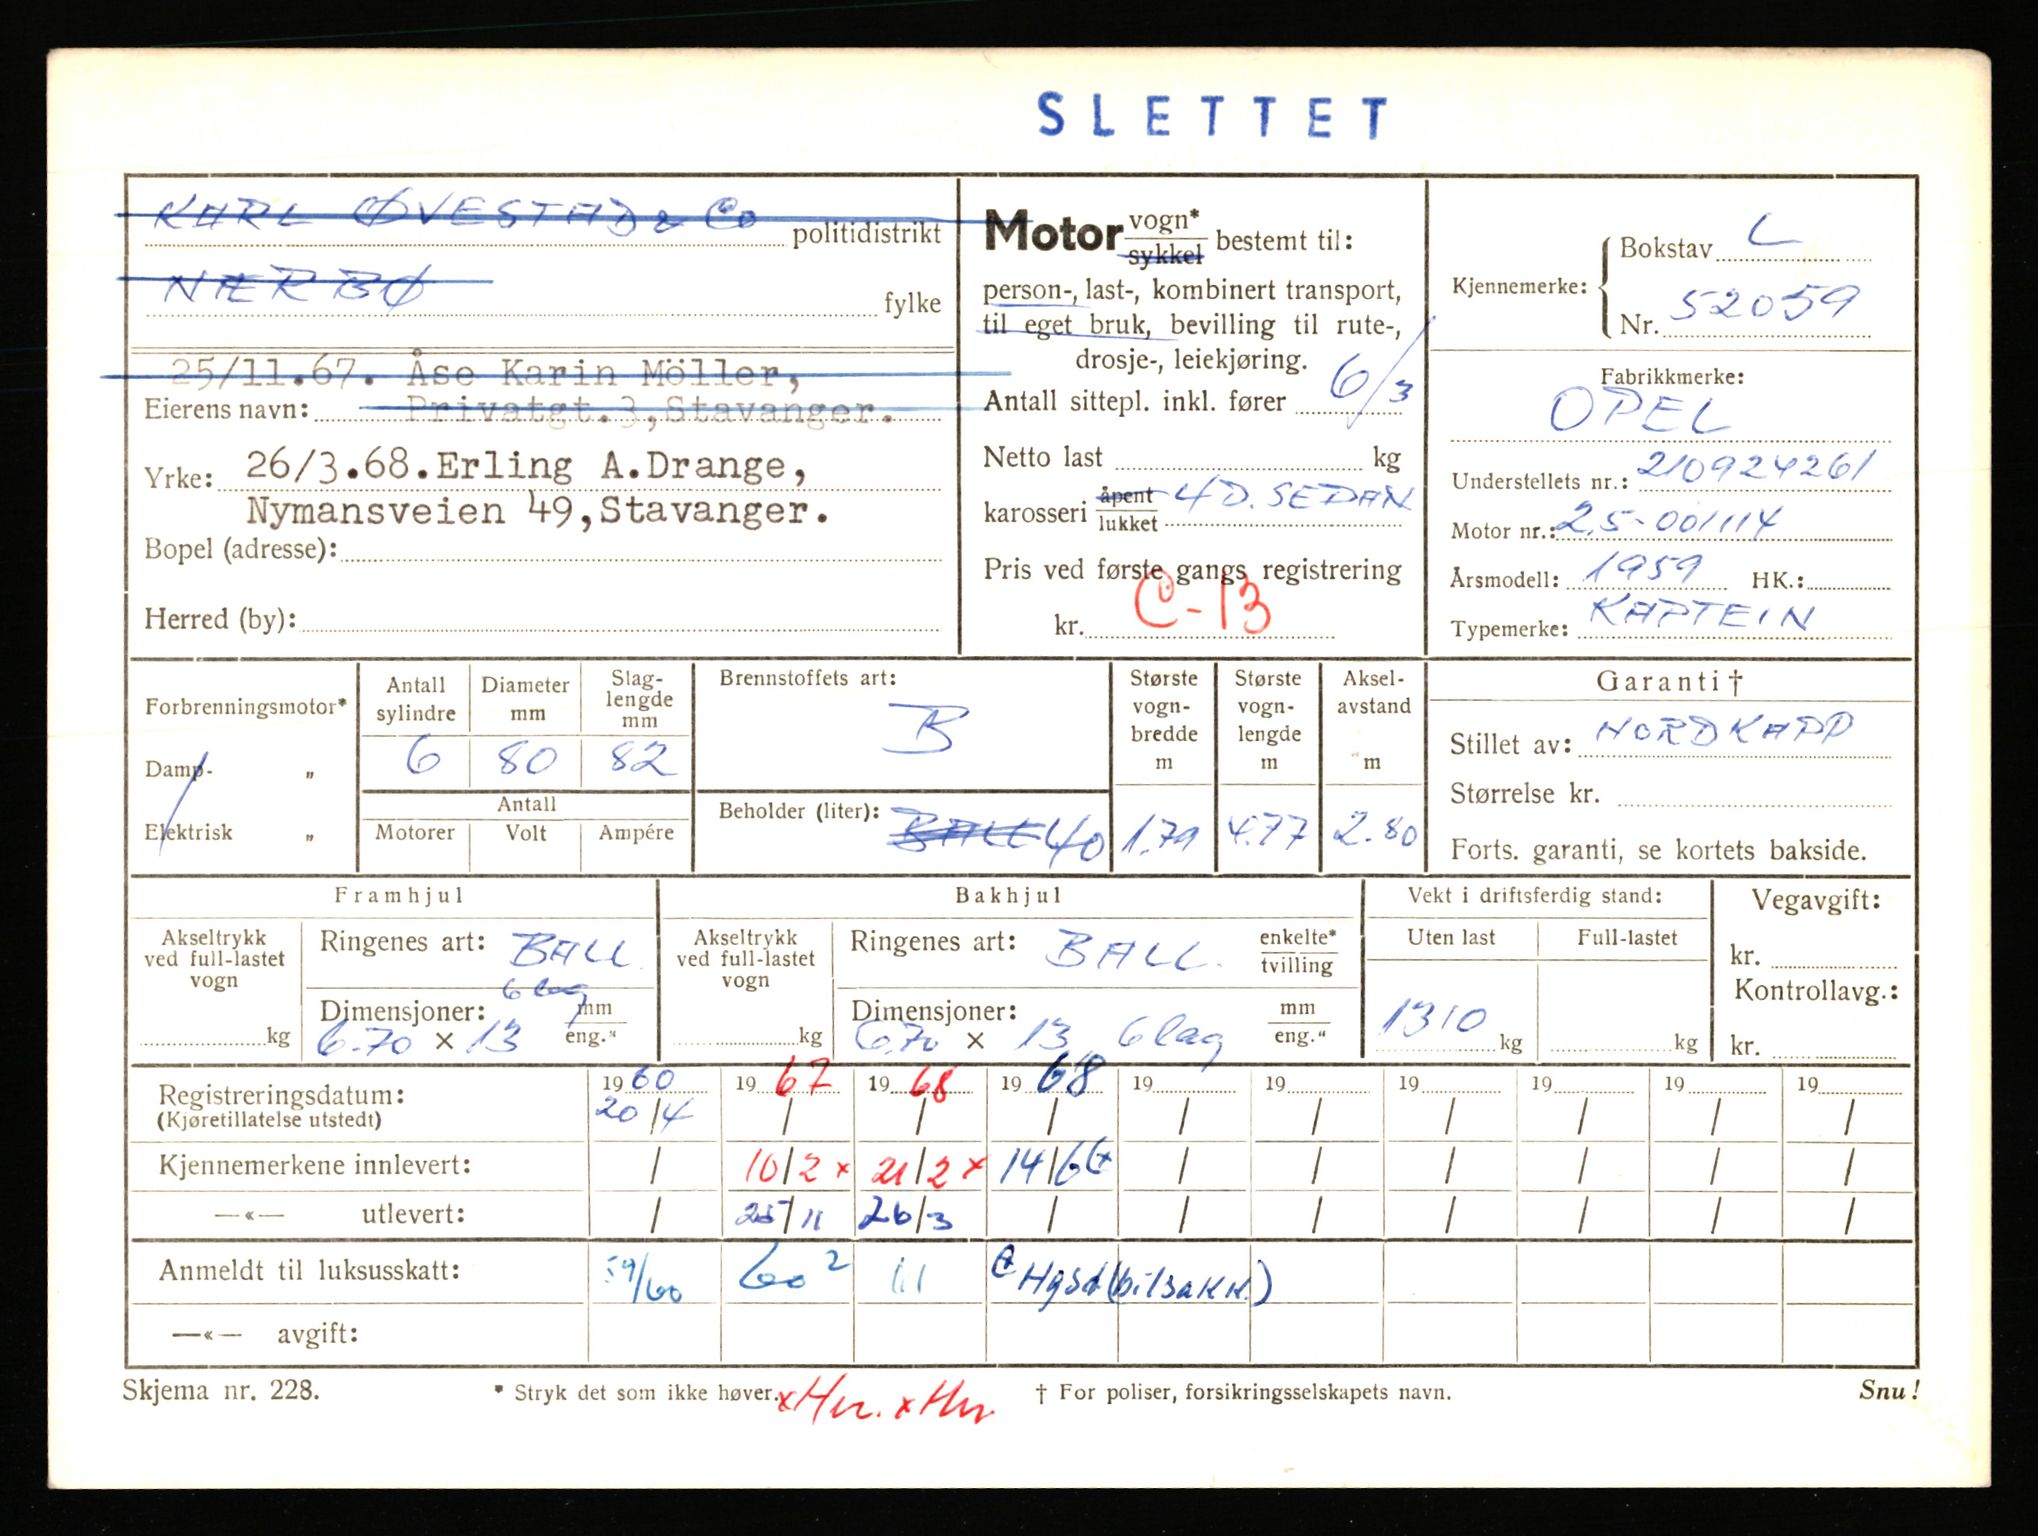 SLETTET
KARL ØVESTAD & Co politidistrikt
NÆRBØ fylke
25/11.67. Åse Karin Möller,
Eierens navn: Privatgt.3,Stavanger.
Yrke: 26/3.68.Erling A.Drange,
Nymansveien 49,Stavanger.
Bopel (adresse):
Herred (by):
Motor vogn* sykkel bestemt til:
person-, last-, kombinert transport,
til eget bruk, bevilling til rute-,
drosje-, leiekjøring.
Antall sittepl. inkl. fører 6/3
Netto last kg
karosseri åpent lukket 4D. SEDAN
Pris ved første gangs registrering
kr. C-13
Kjennemerke: Bokstav L
Nr. 52059
Fabrikkmerke:
OPEL
Understellets nr.: 210924261
Motor nr.: 2,5-001114
Årsmodell: 1959 HK.:
Typemerke: KAPTEIN
Forbrenningsmotor*
Damp- „
Elektrisk „
Antall sylindre
6
Diameter mm
80
Slag-lengde mm
82
Antall
Motorer Volt Ampére
Brennstoffets art:
B
Beholder (liter): BALL 40
Største vogn-bredde m
1.79
Største vogn-lengde m
4.77
Aksel-avstand m
2.80
Garanti †
Stillet av: NORDKAPP
Størrelse kr.
Forts. garanti, se kortets bakside.
Framhjul
Akseltrykk ved full-lastet vogn
kg
Ringenes art: BALL.
6 lag
Dimensjoner: mm
6.70 × 13 eng."
Bakhjul
Akseltrykk ved full-lastet vogn
kg
Ringenes art: BALL. enkelte* tvilling
Dimensjoner: mm
6.70 × 13 6 lag eng."
Vekt i driftsferdig stand:
Uten last Full-lastet
1310 kg kg
Vegavgift:
kr.
Kontrollavg.:
kr.
Registreringsdatum: 1960 1967 1968 1968 19 19 19 19 19 19
(Kjøretillatelse utstedt) 20/4 / / / / / / / / /
Kjennemerkene innlevert: / 10/2 x 21/2 x 14/6 / / / / / /
—«— utlevert: / 25/11 26/3 / / / / / / /
Anmeldt til luksusskatt: 59/60 60² 61 Hgsd (bilsakk.)
—«— avgift:
Skjema nr. 228. * Stryk det som ikke høver. xHn. xHn † For poliser, forsikringsselskapets navn. Snu!